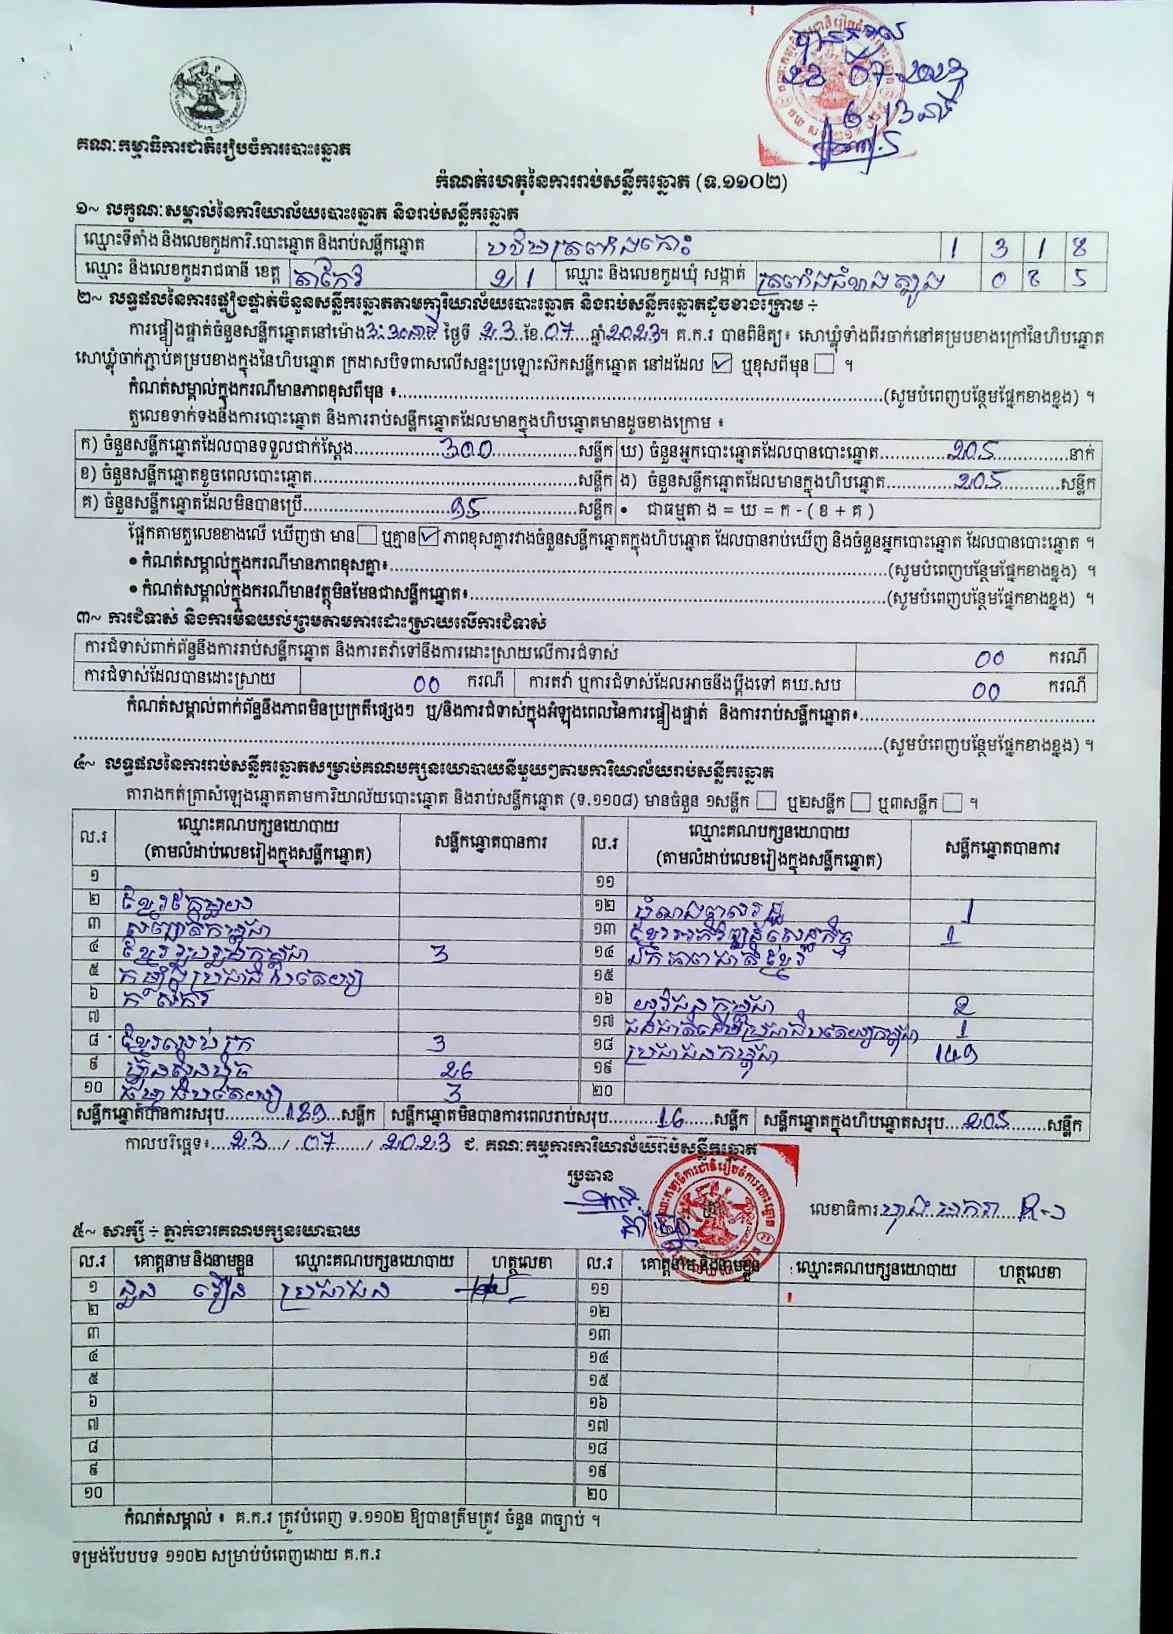 គណៈកម្មាធិការជាតិរៀបចំការបោះឆ្នោត
កំណត់ហេតុនៃការរាប់សន្លឹកឆ្នោត (ទ.១១០២)
១~ លក្ខណៈសម្គាល់នៃការិយាល័យបោះឆ្នោត និងរាប់សន្លឹកឆ្នោត
ឈ្មោះទីតាំង និងលេខកូដការិ.បោះឆ្នោត និងរាប់សន្លឹកឆ្នោត 1 3 1 8
ឈ្មោះ និងលេខកូដរាជធានី ខេត្ត តាកែវ 2 1 ឈ្មោះ និងលេខកូដឃុំ សង្កាត់ 0 8 5
២~ លទ្ធផលនៃការផ្ទៀងផ្ទាត់ចំនួនសន្លឹកឆ្នោតតាមការិយាល័យបោះឆ្នោត និងរាប់សន្លឹកឆ្នោតដូចខាងក្រោម ÷
ការផ្ទៀងផ្ទាត់ចំនួនសន្លឹកឆ្នោតនៅម៉ោង ថ្ងៃទី 23 ខែ.07....ឆ្នាំ2023។ គ.ក.រ បានពិនិត្យ៖ សោឃ្លុំទាំងពីរចាក់នៅគម្របខាងក្រៅនៃហិបឆ្នោត
សោឃ្លុំចាក់ភ្ជាប់គម្របខាងក្នុងនៃហិបឆ្នោត ក្រដាសបិទពាសលើសន្ទះប្រឡោះស៊កសន្លឹកឆ្នោត នៅដដែល ☑ ឬខុសពីមុន ☐ ។
កំណត់សម្គាល់ក្នុងករណីមានភាពខុសពីមុន ៖..........(សូមបំពេញបន្ថែមផ្នែកខាងខ្នង) ។
តួលេខទាក់ទងនឹងការបោះឆ្នោត និងការរាប់សន្លឹកឆ្នោតដែលមានក្នុងហិបឆ្នោតមានដូចខាងក្រោម ៖
ក) ចំនួនសន្លឹកឆ្នោតដែលបានទទួលជាក់ស្តែង..........300..........សន្លឹក ឃ) ចំនួនអ្នកបោះឆ្នោតដែលបានបោះឆ្នោត..........205..........នាក់
ខ) ចំនួនសន្លឹកឆ្នោតខូចពេលបោះឆ្នោត....................សន្លឹក ង) ចំនួនសន្លឹកឆ្នោតដែលមានក្នុងហិបឆ្នោត..........205..........សន្លឹក
គ) ចំនួនសន្លឹកឆ្នោតដែលមិនបានប្រើ..........95..........សន្លឹក • ជាធម្មតា ង = ឃ = ក - ( ខ + គ )
ផ្អែកតាមតួលេខខាងលើ ឃើញថា មាន ☐ ឬគ្មាន ☑ ភាពខុសគ្នារវាងចំនួនសន្លឹកឆ្នោតក្នុងហិបឆ្នោត ដែលបានរាប់ឃើញ និងចំនួនអ្នកបោះឆ្នោត ដែលបានបោះឆ្នោត ។
• កំណត់សម្គាល់ក្នុងករណីមានភាពខុសគ្នា៖..........(សូមបំពេញបន្ថែមផ្នែកខាងខ្នង) ។
• កំណត់សម្គាល់ក្នុងករណីមានវត្ថុមិនមែនជាសន្លឹកឆ្នោត៖..........(សូមបំពេញបន្ថែមផ្នែកខាងខ្នង) ។
៣~ ការជំទាស់ និងការមិនយល់ព្រមតាមការដោះស្រាយលើការជំទាស់
ការជំទាស់ពាក់ព័ន្ធនឹងការរាប់សន្លឹកឆ្នោត និងការតវ៉ាទៅនឹងការដោះស្រាយលើការជំទាស់ 00 ករណី
ការជំទាស់ដែលបានដោះស្រាយ 00 ករណី ការតវ៉ា ឬការជំទាស់ដែលអាចនឹងប្តឹងទៅ គឃ.សប 00 ករណី
កំណត់សម្គាល់ពាក់ព័ន្ធនឹងភាពមិនប្រក្រតីផ្សេងៗ ឬ/និងការជំទាស់ក្នុងអំឡុងពេលនៃការផ្ទៀងផ្ទាត់ និងការរាប់សន្លឹកឆ្នោត៖..........
..........(សូមបំពេញបន្ថែមផ្នែកខាងខ្នង) ។
៤~ លទ្ធផលនៃការរាប់សន្លឹកឆ្នោតសម្រាប់គណបក្សនយោបាយនីមួយៗតាមការិយាល័យរាប់សន្លឹកឆ្នោត
តារាងកត់ត្រាសំឡេងឆ្នោតតាមការិយាល័យបោះឆ្នោត និងរាប់សន្លឹកឆ្នោត (ទ.១១០៨) មានចំនួន ១សន្លឹក ☐ ឬ២សន្លឹក ☐ ឬ៣សន្លឹក ☐ ។
ល.រ ឈ្មោះគណបក្សនយោបាយ (តាមលំដាប់លេខរៀងក្នុងសន្លឹកឆ្នោត) សន្លឹកឆ្នោតបានការ ល.រ ឈ្មោះគណបក្សនយោបាយ (តាមលំដាប់លេខរៀងក្នុងសន្លឹកឆ្នោត) សន្លឹកឆ្នោតបានការ
១ ១១
២ ១២ 1
៣ ១៣ ខ្មែរអភិវឌ្ឍន៍សេដ្ឋកិច្ច 1
៤ ខ្មែររួបរួមកម្ពុជា 3 ១៤ ឯកភាពជាតិខ្មែរ
៥ កម្លាំងប្រជាធិបតេយ្យ ១៥
៦ កសិករ ១៦ យុវជនកម្ពុជា 2
៧ ១៧ 1
៨ 3 ១៨ ប្រជាជនកម្ពុជា 149
៩ ហ៊្វុនស៊ិនប៉ិច 26 ១៩
១០ ធម្មាធិបតេយ្យ 3 ២០
សន្លឹកឆ្នោតបានការសរុប..........189....សន្លឹក សន្លឹកឆ្នោតមិនបានការពេលរាប់សរុប..........16......សន្លឹក សន្លឹកឆ្នោតក្នុងហិបឆ្នោតសរុប...205......សន្លឹក
កាលបរិច្ឆេទ៖...23.../..07....../ 2023 ជ. គណៈកម្មការការិយាល័យរាប់សន្លឹកឆ្នោត
ប្រធាន
លេខាធិការ
៥~ សាក្សី ÷ ភ្នាក់ងារគណបក្សនយោបាយ
ល.រ គោត្តនាម និងនាមខ្លួន ឈ្មោះគណបក្សនយោបាយ ហត្ថលេខា ល.រ គោត្តនាម និងនាមខ្លួន ឈ្មោះគណបក្សនយោបាយ ហត្ថលេខា
១ ប្រជាជន ១១
២ ១២
៣ ១៣
៤ ១៤
៥ ១៥
៦ ១៦
៧ ១៧
៨ ១៨
៩ ១៩
១០ ២០
កំណត់សម្គាល់ ៖ គ.ក.រ ត្រូវបំពេញ ទ.១១០២ ឱ្យបានត្រឹមត្រូវ ចំនួន ៣ច្បាប់ ។
ទម្រង់បែបបទ ១១០២ សម្រាប់បំពេញដោយ គ.ក.រ